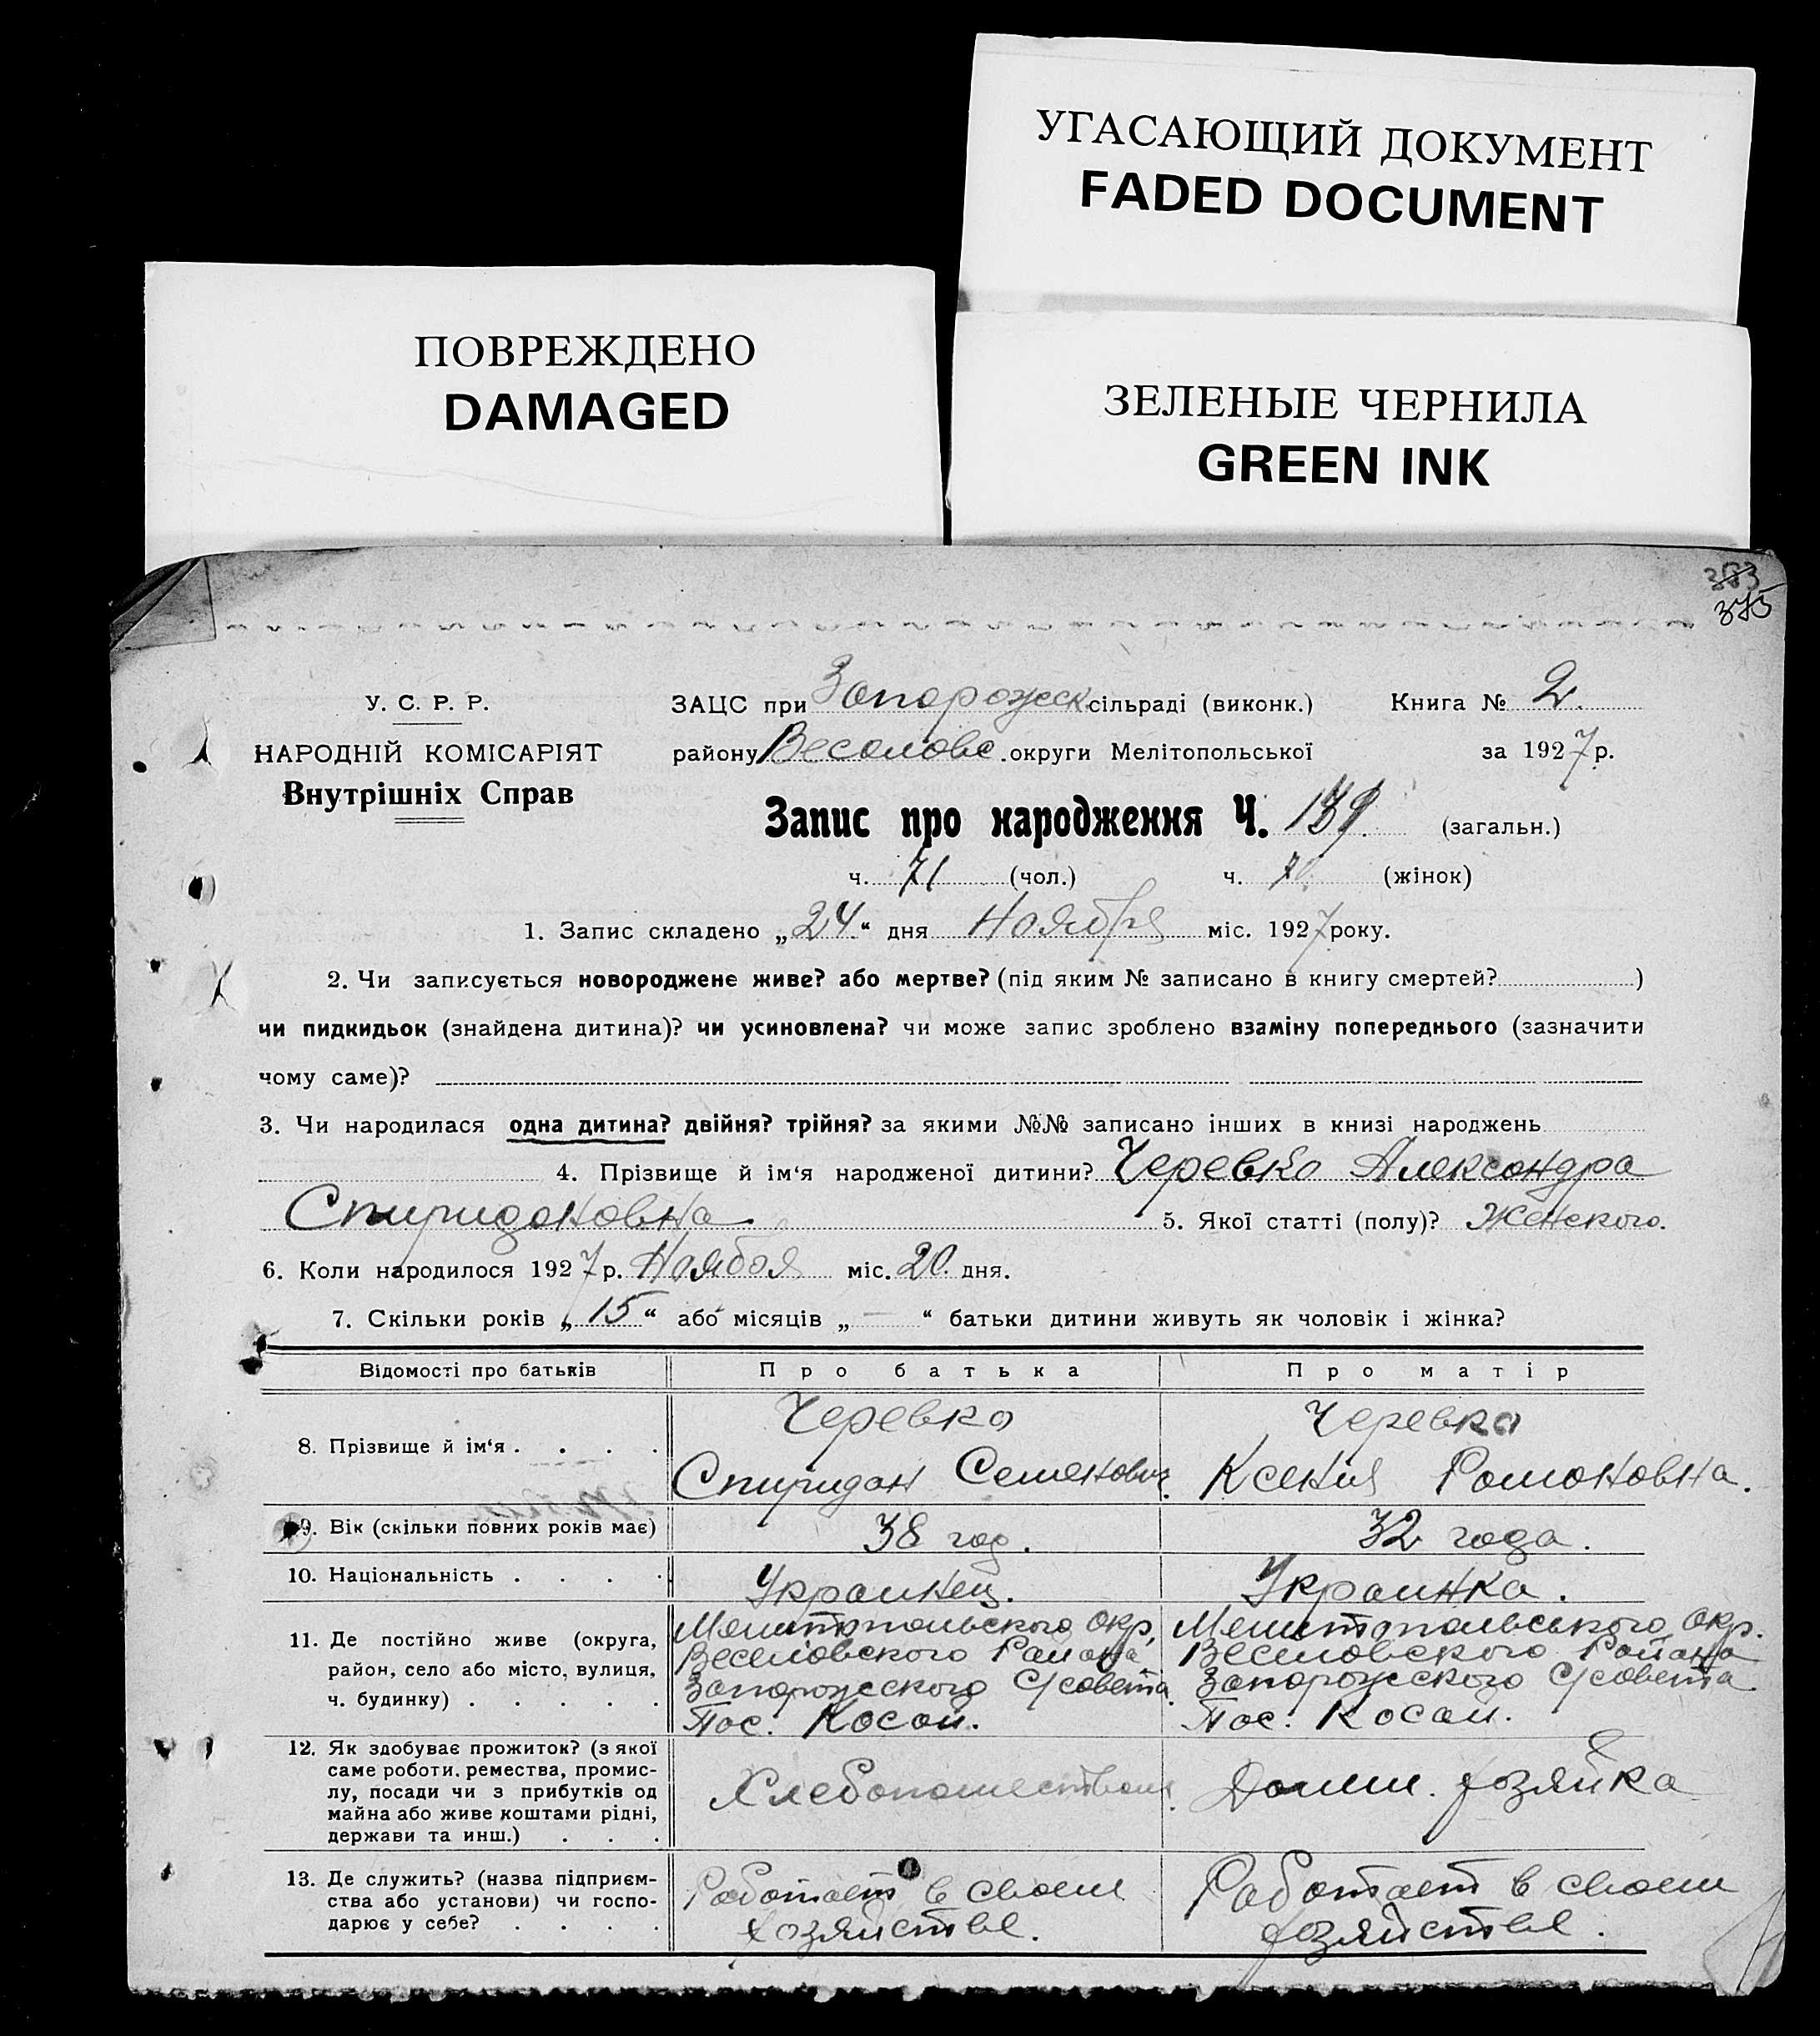 УГАСАЮЩИЙ ДОКУМЕНТ
FADED DOCUMENT
ПОВРЕЖДЕНО
DAMAGED
ЗЕЛЕНЫЕ ЧЕРНИЛА
GREEN INK
383
375
У. С. Р. Р.
НАРОДНІЙ КОМІСАРІЯТ
Внутрішніх Справ
ЗАЦС при Запорожск. сільраді (виконк.) Книга № 2.
району Веселовс. округи Мелітопольської за 1927 р.
Запис про народження Ч. 139. (загальн.)
ч. 71 (чол.) ч. (жінок)
1. Запис складено „24.“ дня Ноября міс. 1927 року.
2. Чи записується новороджене живе? або мертве? (під яким № записано в книгу смертей? )
чи пидкидьок (знайдена дитина)? чи усиновлена? чи може запис зроблено взаміну попереднього (зазначити
чому саме)?
3. Чи народилася одна дитина? двійня? трійня? за якими №№ записано інших в книзі народжень
4. Прізвище й ім‘я народженої дитини? Черевко Александра
Спиридоновна 5. Якої статті (полу)? Женского.
6. Коли народилося 1927 р. Ноября міс. 20. дня.
7. Скільки років „15“ або місяців „—“ батьки дитини живуть як чоловік і жінка?
Відомості про батьків Про батька Про матір
8. Прізвище й ім‘я . . . . Черевко Черевко
Спиридон Семенович. Ксения Романовна.
9. Вік (скільки повних років має) 38 год. 32 года.
10. Національність . . . . Украинец. Украинка.
11. Де постійно живе (округа, район, село або місто, вулиця, ч. будинку) . . . . .
Мелитопольского Окр, Мелитопольського Окр.
Веселовского Района Веселовского Района
Запорожского С/совета. Запорожского С/совета
Пос. Косой. Пос. Косой.
12. Як здобуває прожиток? (з якої
саме роботи, ремества, промис-
лу, посади чи з прибутків од
майна або живе коштами рідні,
держави та инш.) . . .
Хлебопашеством. Домш. хозяйка
13. Де служить? (назва підприєм-
ства або установи) чи госпо-
дарює у себе? . . . .
Работает в своем Работает в своем
хозяйстве. хозяйстве.